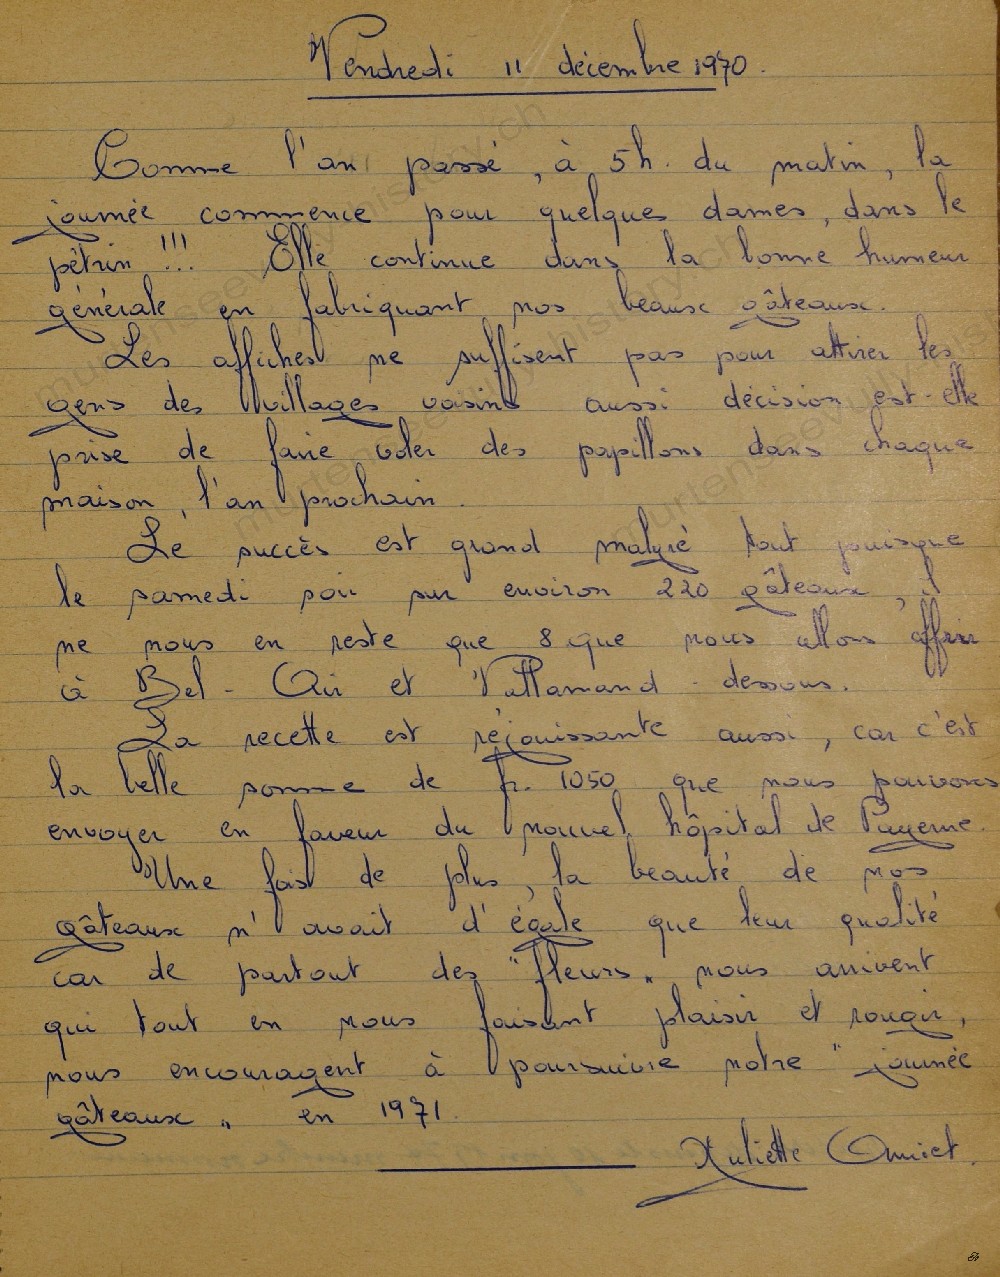 Vendredi 11 décembre 1970.
Comme l'an passé, à 5h. du matin, la
journée commence pour quelques dames, dans le
pétrin !!! Elle continue dans la bonne humeur
générale en fabriquant nos beaux gâteaux.
Les affiches ne suffisent pas pour attirer les
gens des villages voisins aussi décision est-elle
prise de faire voler des papillons dans chaque
maison, l'an prochain.
Le succès est grand malgré tout puisque
le samedi soir sur environ 220 gâteaux, il
ne nous en reste que 8 que nous allons offrir
à Bel-Air et Vallamand-dessous.
La recette est réjouissante aussi, car c'est
la belle somme de fr. 1050 que nous pouvons
envoyer en faveur du nouvel hôpital de Payerne.
Une fois de plus, la beauté de nos
gâteaux n'avait d'égale que leur qualité
car de partout des "fleurs" nous arrivent
qui tout en nous faisant plaisir et rougir,
nous encouragent à poursuivre notre "journée
gâteaux" en 1971.
Juliette Amiet.
murtenseevully.history.ch